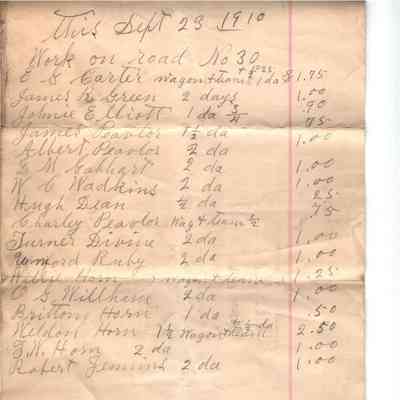 This Sept 23 1910
Work on road No 30
E G Carter wagon & team 1 da & 1.75
James K Green 2 days 1.00
Johnie Elliott 1 da 3/4 .90
James Peavlor 1 1/2 da 75
Albert Peavlor 2 da 1.00
G M Gabhart 2 da 1.00
W C Wadkins 2 da 1.00
Hugh Dean 1/2 da 25
Charley Peavlor Wag & team 1/2 75
Turner Divine 2 da 1.00
Ruby 2 da 1.00
Horn Wagon & team 1.25
C G Willham 2 da 1.00
Brittom Horn 1 da .50
Weldon Horn 1 1/2 Wagon & team 2.50
T.W. Horn 2 da 1.00
Robert Jennins 2 da 1.00